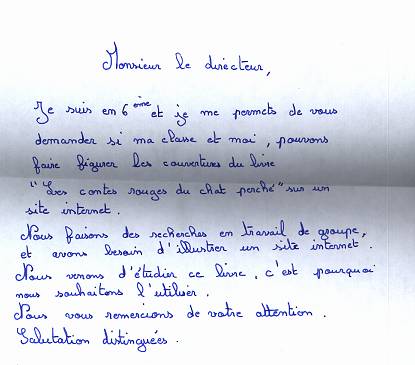 Monsieur le directeur,
Je suis en 6 ème et je me permets de vous
demander si ma classe et moi, pouvons
faire figurer les couvertures du livre
"Les contes rouges du chat perché" sur un
site internet.
Nous faisons des recherches en travail de groupe,
et avons besoin d'illustrer un site internet.
Nous venons d'étudier ce livre, c'est pourquoi
nous souhaitons l'utiliser.
Nous vous remercions de votre attention.
Salutation distinguées.